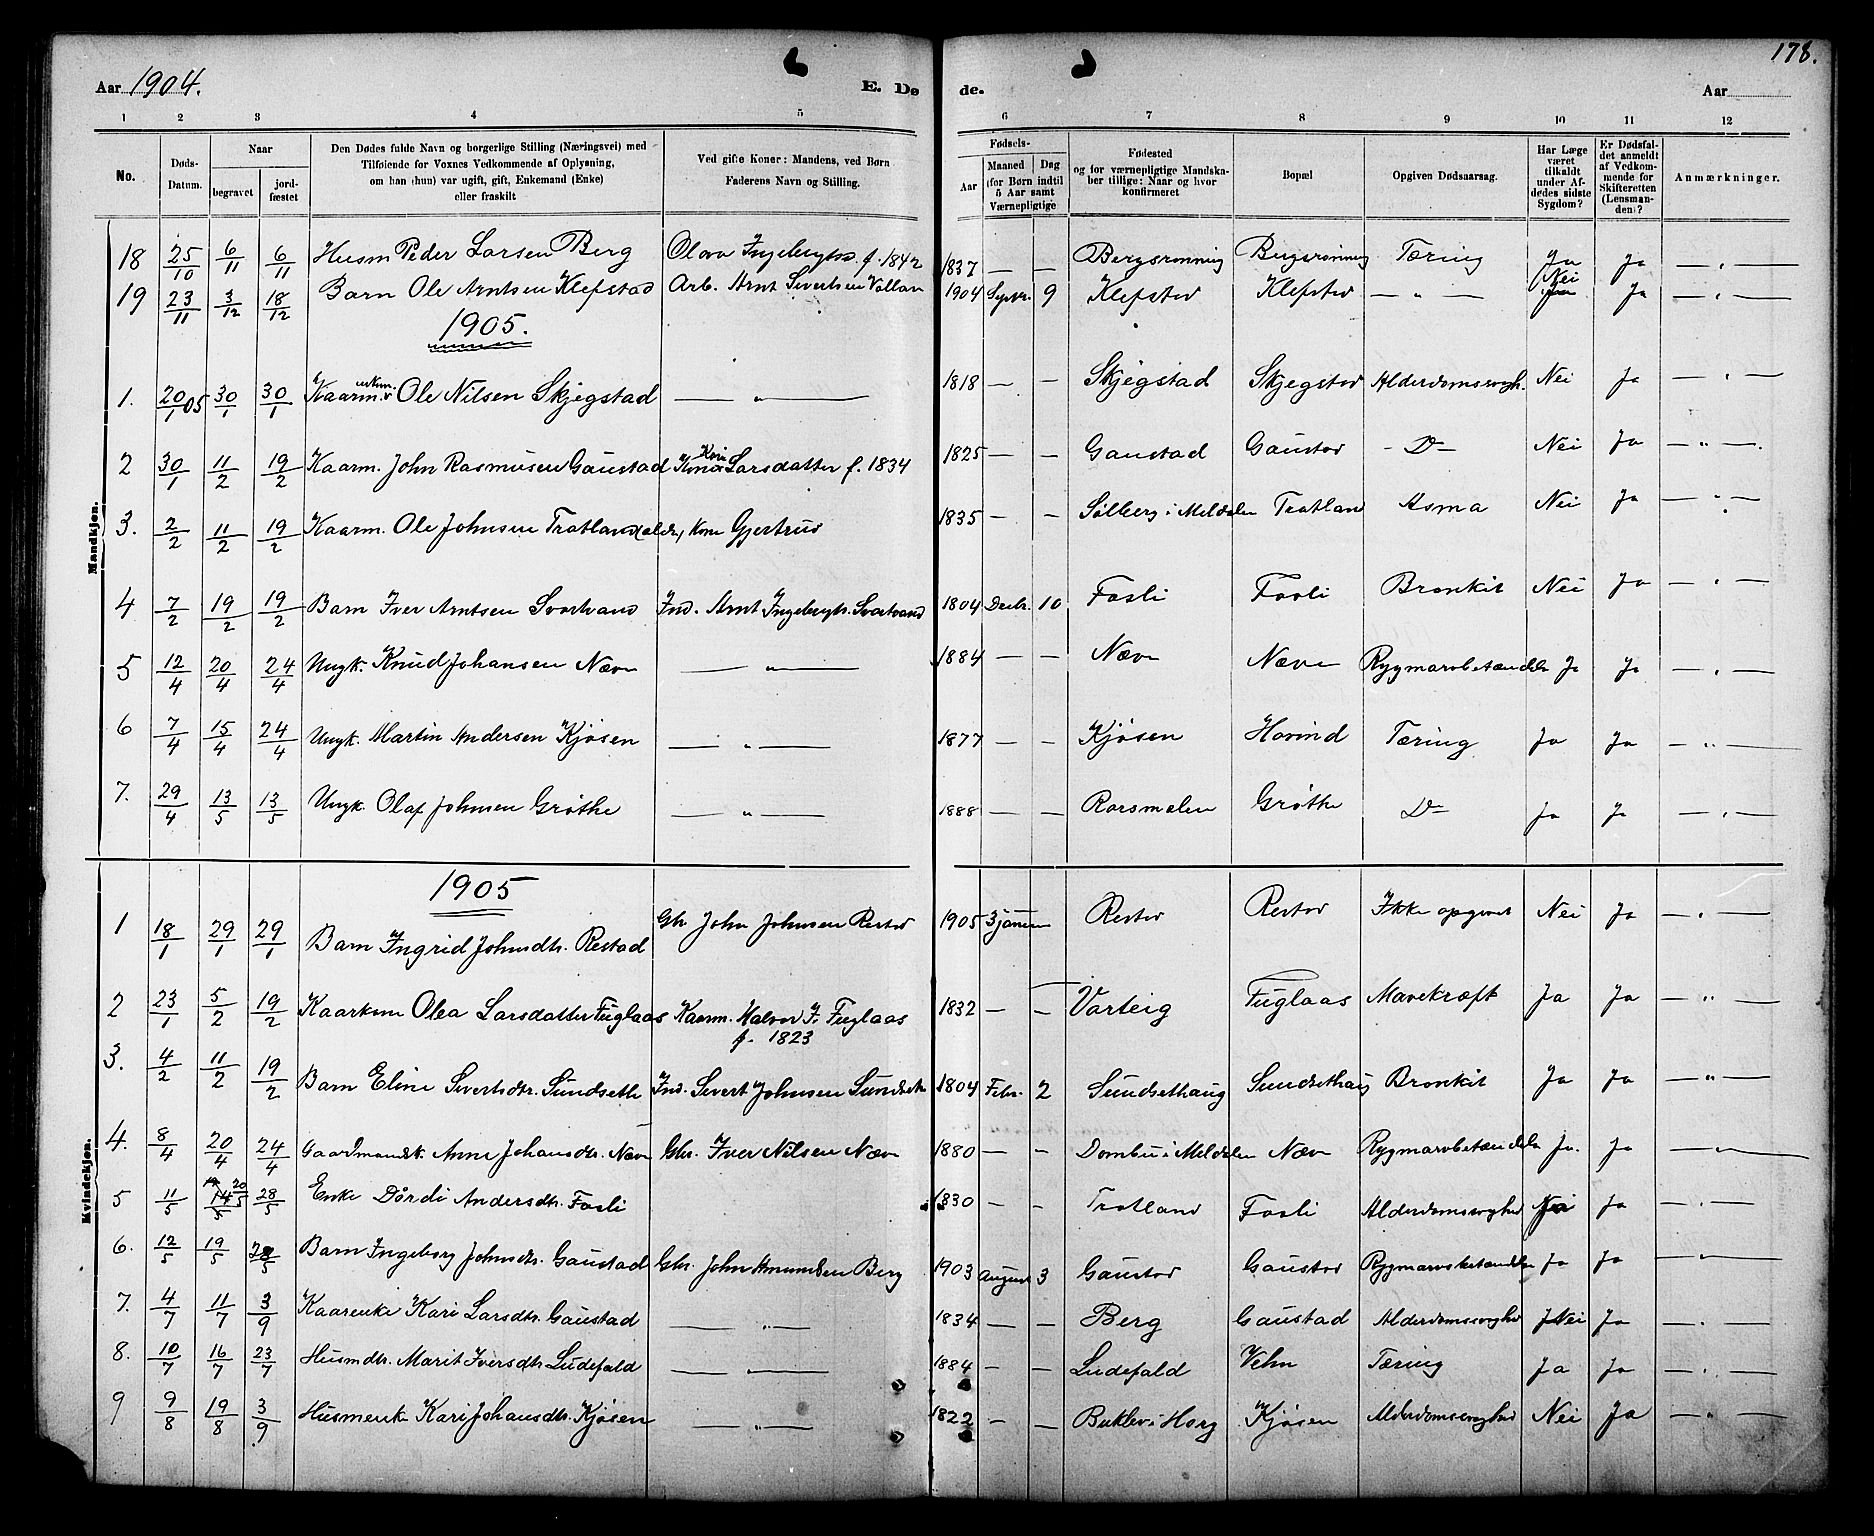 178.
Aar 1904. E. Dø de. Aar
1 2 3 4 5 6 7 8 9 10 11 12
No. Døds-Datum. Naar begravet jordfæstet Den Dødes fulde Navn og borgerlige Stilling (Næringsvei) med Tilføiende for Voxnes Vedkommende af Oplysning, om han (hun) var ugift, gift, Enkemand (Enke) eller fraskilt Ved gifte Koner: Mandens, ved Børn Faderens Navn og Stilling. Fødsels- Aar Maaned Dag (for Børn indtil 5 Aar samt Værnepligtige Fødested og for værnepligtige Mandskaber tillige: Naar og hvor konfirmeret Bopæl Opgiven Dødsaarsag. Har Læge været tilkaldt under Afdødes sidste Sygdom? Er Dødsfaldet anmeldt af Vedkommende for Skifteretten (Lensmanden)? Anmærkninger.
Mandkjøn.
18 25/10 6/11 6/11 Husm Peder Larsen Berg Olava Ingebrigtsd. f. 1842 1837 — — Bergsrønning Bergsrønning Tæring Ja Ja — " —
19 23/11 3/12 18/12 Barn Ole Arntsen Klefstad Arb. Arnt Sivertsen Vollan 1904 Septbr. 9 Klefstad Klefstad — " — Nei Ja — " —
1905.
1. 20/1 05 30/1 30/1 Kaarm. enkem. Ole Nilsen Skjegstad — " — 1818 — — Skjegstad Skjegstad Alderdomssvagh. Nei Ja — " —
2 30/1 11/2 19/2 Kaarm. John Rasmusen Gaustad Kone Kari Larsdatter f. 1834 1825 — — Gaustad Gaustad - Do - Nei Ja — " —
3. 2/2 11/2 19/2 Kaarm. Ole Johnsen Tratland (aldr) Kone Gjertrud 1835 — — Solberg i Meldalen Tratland Asma Nei Ja — " —
4 7/2 19/2 19/2 Barn Iver Arntsen Svartvand Ind. Arnt Ingebrigts. Svartvand 1804 Decbr. 10 Fosli Fosli Bronkit Nei Ja — " —
5 12/4 20/4 24/4 Ungk. Knud Johansen Næve — " — 1884 — — Næve Næve Rygmarvbetændelse Ja Ja — " —
6 7/4 15/4 24/4 Ungk. Martin Andersen Kjøsen — " — 1877 — — Kjøsen Hovind Tæring Ja Ja — " —
7. 29/4 13/5 13/5 Ungk. Olaf Johnsen Grøthe — " — 1888 — — Rørsmalen Grøthe Do Ja Ja — " —
Kvindekjøn.
1905
1 18/1 29/1 29/1 Barn Ingrid Johnsdtr. Restad Gbr John Johnsen Restad 1905 3 januar Restad Restad Ikke opgivet Nei Ja — " —
2 23/1 5/2 19/2 Kaarkone Olea Larsdatter Fuglaas Kaarm. Halvor I. Fuglaas f. 1823 1832 — — Varteig Fuglaas Mavekræft Ja Ja — " —
3. 4/2 11/2 19/2 Barn Eline Sivertsdtr. Sundseth Ind. Sivert Johnsen Sundseth 1804 Febr. 2 Sundsethaug Sundsethaug Bronkit Ja Ja — " —
4. 8/4 20/4 24/4 Gaardmandsk. Anne Johansdtr. Næve Gbr. Iver Nilsen Næve 1880 — — Dombu i Meldalen Næve Rygmarvbetændelse Ja. Ja — " —
5 11/5 20/5 28/5 Enke Dordi Andersdtr. Fosli 1830 — — Tratland Fosli Alderdomssvaghed Nei Ja — " —
6. 12/5 19/5 28/5 Barn Ingeborg Johnsdtr. Gaustad Gbr. John Amundsen Berg 1903 August 3 Gaustad Gaustad Rygmarvsbetændelse Ja Ja — " —
7. 4/7 11/7 3/9 Kaarenke Kari Larsdtr. Gaustad — " — 1834 — — Berg Gaustad Alderdomssvaghed Nei Ja — " —
8. 10/7 16/7 23/7 Husmdtr. Marit Iversdtr. Ludefald — " — 1884 — — Ludefald Vehn Tæring Ja Ja — " —
9 9/8 19/8 3/9 Husmenke Kari Johansdtr. Kjøsen — " — 1822 — — Buklev i Horg Kjøsen Alderdomssvaghed Nei Ja — " —